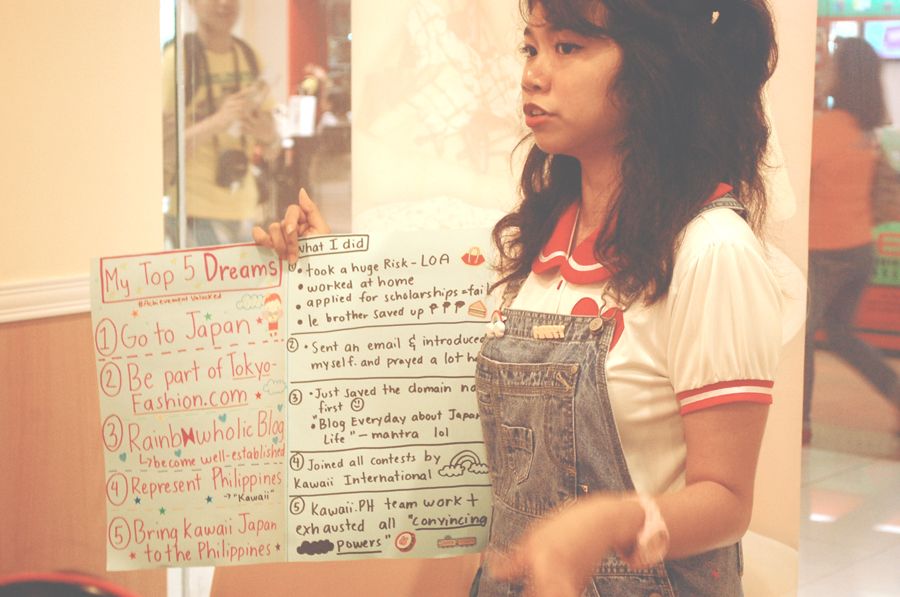 My Top 5 Dreams
#Achievement Unlocked
1 Go to Japan
2 Be part of Tokyo-
Fashion.com
3 RainbowholicBlog
↳become well-established
4 Represent Philippines
→"Kawaii"
5 Bring Kawaii Japan
to the Philippines
what I did
• took a huge Risk - LOA
• worked at home
• applied for scholarships = fail
• le brother saved up PPP
2 • Sent an email & introduced
myself. and prayed a lot
3 • Just saved the domain
first
• "Blog Everyday about Japan
Life" - mantra lol
4 Joined all contests by
Kawaii International
5 Kawaii.PH team work +
exhausted all "convincing
powers"